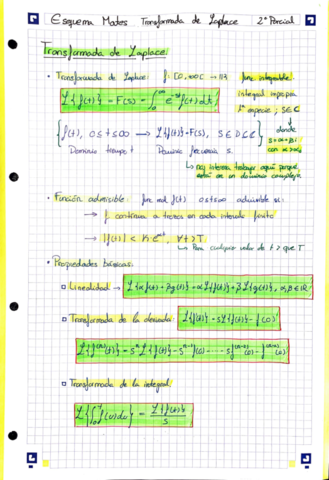 Esquema Modres Transformada de Laplace 2º Parcial
Transformada de Laplace:
• Transformada de Laplace: f: [0, ∞) ⊂ → ℝ func. integrable.
ℒ{f(t)} = F(s) = ∫₀^∞ e^{-st} f(t) dt
integral impropia
1ª especie, s ∈ ℂ
{f(t), 0 ≤ t ≤ ∞ → ℒ{f(t)} = F(s), s ∈ D ⊂ ℂ}
donde
Dominio tiempo t Dominio frecuencia s.
nos interesa trabajar aquí porque
está en un dominio complejo
• Función admisible: func. real f(t) 0 ≤ t ≤ ∞ admisible si:
→ f continua a trozos en cada intervalo finito
→ |f(t)| < K·e^{αt}, ∀t > T
↳ Para cualquier valor de t > que T
• Propiedades básicas:
Linealidad → ℒ{αf(t) + βg(t)} = αℒ{f(t)} + βℒ{g(t)}, α, β ∈ ℝ
Transformada de la derivada: ℒ{f'(t)} = sℒ{f(t)} - f(0)
ℒ{f^{(n)}(t)} = s^n ℒ{f(t)} - s^{n-1} f(0) - ... - s f^{(n-2)}(0) - f^{(n-1)}(0)
Transformada de la integral:
ℒ{∫₀^t f(u) du} = ℒ{f(t)} / s